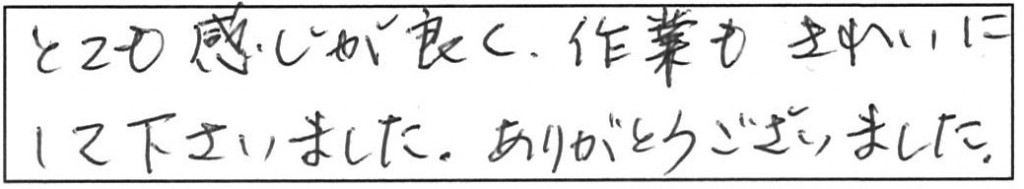 とても感じが良く、作業もきれいに
して下さいました。ありがとうございました。